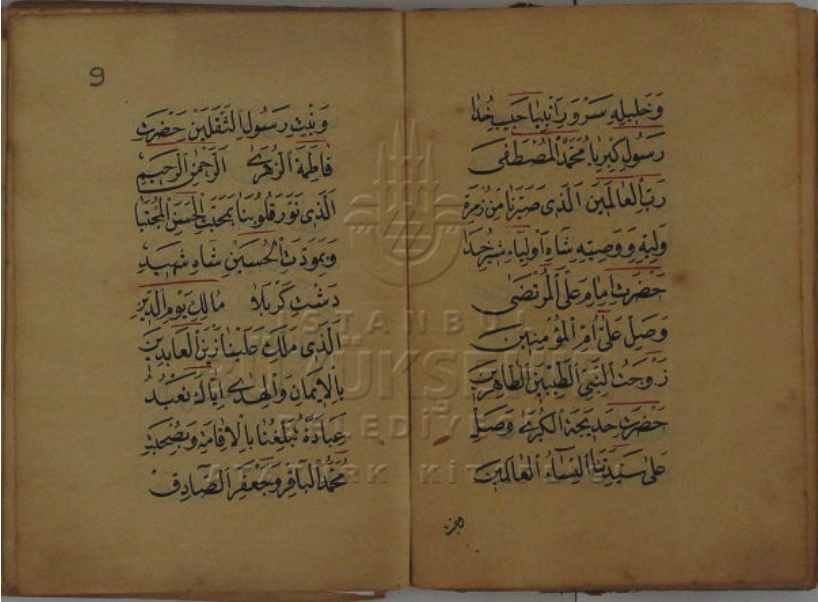 وَخَلِيلِهِ سَرْوَرِ اَنْبِيَا حَبِيبِ خُدَا
رَسُولِ كِبْرِيَا مُحَمَّدُ الْمُصْطَفٰى
رَبِّ الْعَالَمِينَ اَلَّذِى صَيَّرَنَا مِنْ زُمْرَةِ
وَلِيِّهِ وَوَصِيِّهِ شَاهِ اَوْلِيَاءِ شِيرِ خُدَا
حَضْرَتِ اِمَامِ عَلِىِّ الْمُرْتَضٰى
وَصَلِّ عَلٰى اُمِّ الْمُؤْمِنِينَ
زَوْجَتُ النَّبِىِّ الطَّيِّبِينَ الطَّاهِرِينَ
حَضْرَتِ خَدِيجَةِ الْكُبْرٰى وَصَلِّ
عَلٰى سَيِّدَتِنَا النِّسَاءُ الْعَالَمِينَ
9
وَبِنْتِ رَسُولِ الثَّقَلَيْنِ حَضْرَتِ
فَاطِمَةَ الزُّهْرٰى اَلرَّحْمٰنِ الرَّحِيمِ
اَلَّذِى نَوَّرَ قُلُوبَنَا بِمَحَبَّتِ الْحَسَنِ الْمُجْتَبَا
وَبِمَوَدَّتِ الْحُسَيْنِ شَاهِ شَهِيدِ
دَشْتِ كَرْبَلَا مَالِكِ يَوْمِ الدِّينِ
اَلَّذِى مَلَكَ زَيْنَ الْعَابِدِينَ
بِالْاِيمَانِ وَالْهُدٰى اِيَّاكَ نَعْبُدُ
عِبَادَةً تُبَلِّغُنَا بِالْاِقَامَةِ وَبِصُحْبَةِ
مُحَمَّدُ الْبَاقِرِ وَجَعْفَرِ الصَّادِقِ
İSTANBUL
BÜYÜKŞEHİR
BELEDİYESİ
ATATÜRK KİTAPLIĞI